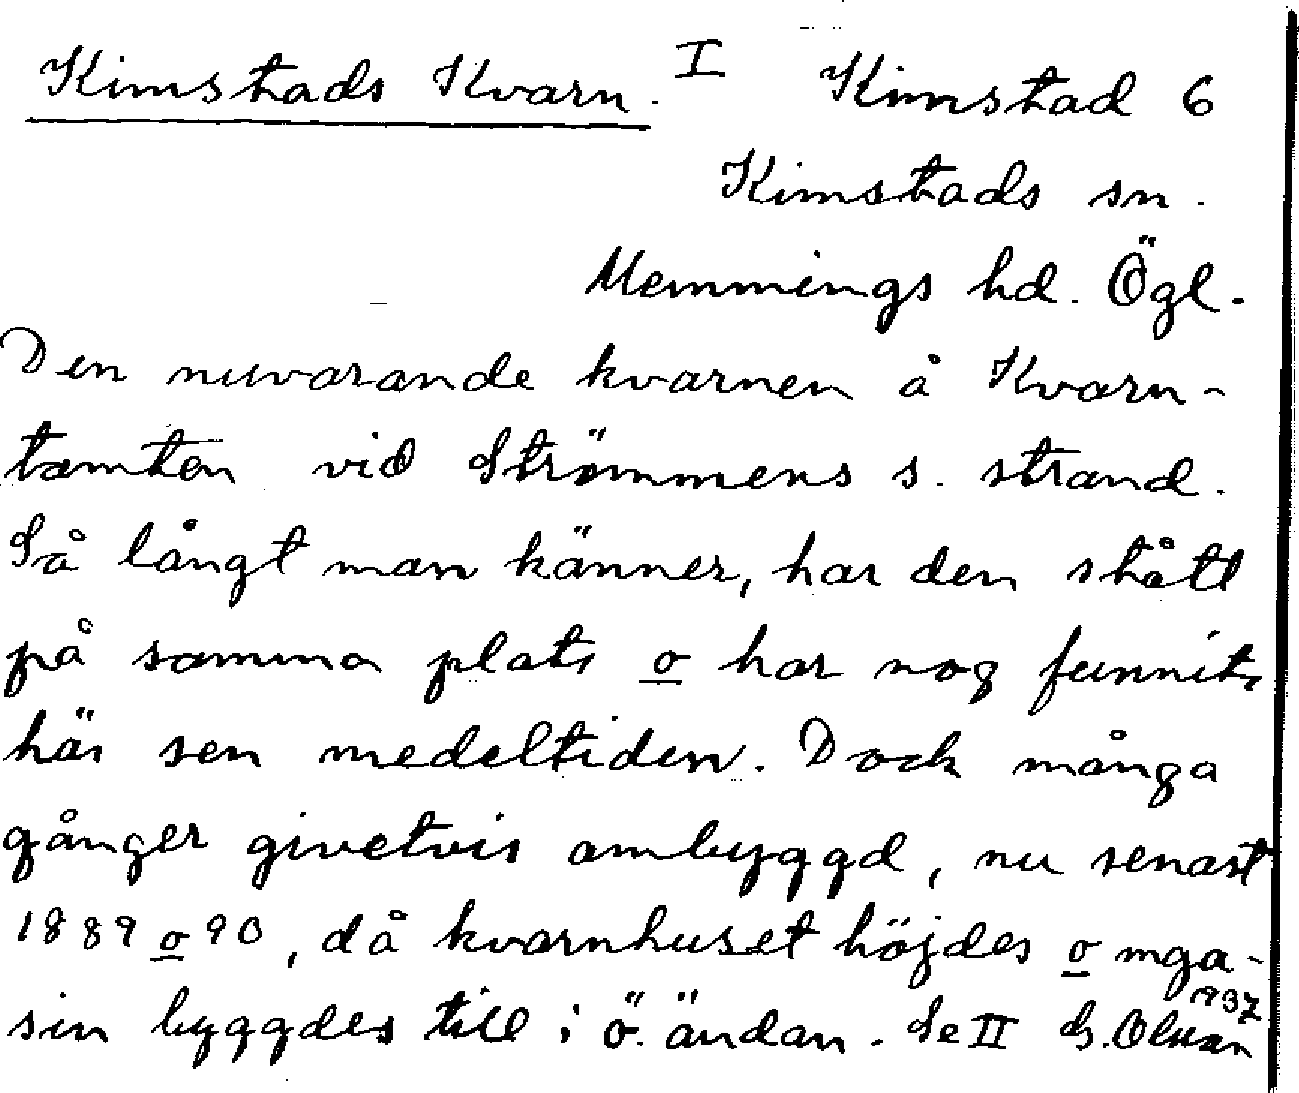 Kimstads Kvarn. I Kimstad 6
Kimstads sn.
Memmings hd. Ögl.
Den nuvarande kvarnen å Kvarn-
tomten vid Strömmens s. strand.
Så långt man känner, har den stått
på samma plats o har nog funnits
här sen medeltiden. Dock många
gånger givetvis ombyggd, nu senast
1889 o 90, då kvarnhuset höjdes o mga-
sin byggdes till i ö. ändan. Se II
937